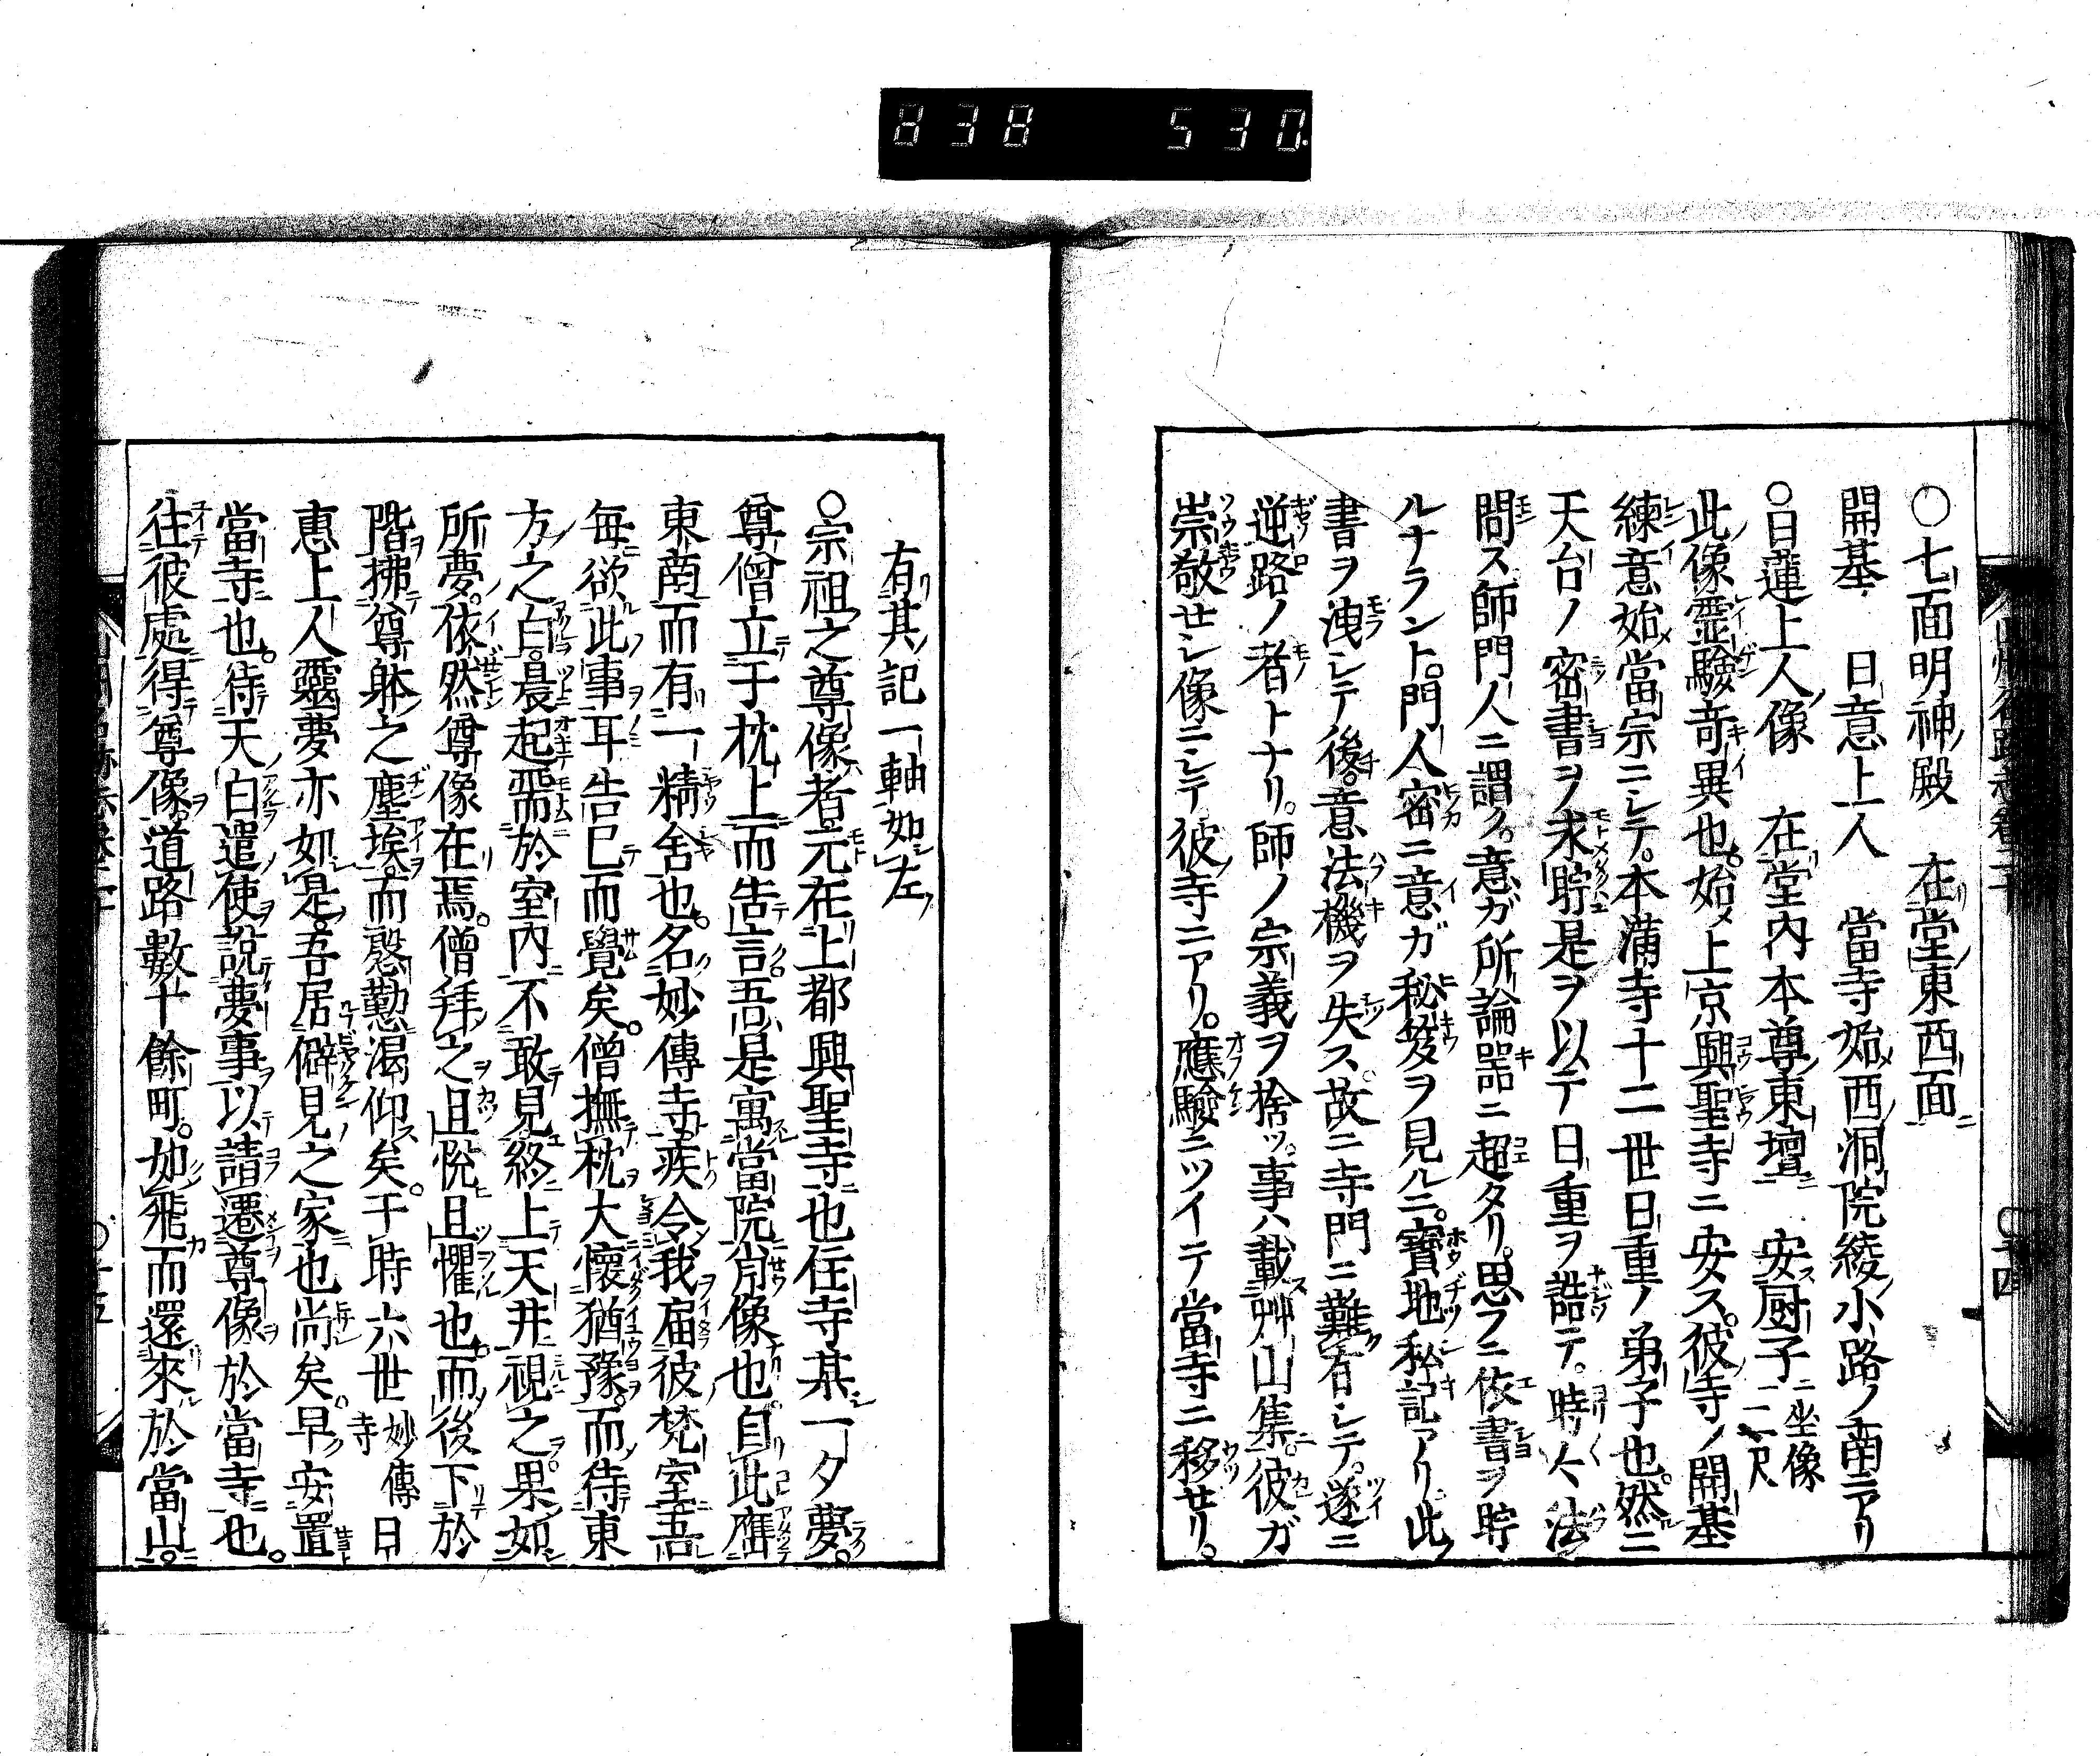 838 530.
○七面明神殿 在堂東西面
開基 日意上人 當寺始西洞院綾小路ノ南ニアリ
○日蓮上人像 在堂內本尊東壇 安厨子ニ坐像二尺
此像霊驗奇異也。始メ上京興聖寺ニ安ス。彼寺ノ開基
練意始當宗ニシテ。本満寺十二世日重ノ弟子也。然ニ
天台ノ密書ヲ求貯是ヲ以テ日重ヲ詰テ。時々法
問ス師門人ニ謂ク。意ガ所論器ニ超タリ。思フニ依書ヲ貯
ルナラント。門人密ニ意ガ秘笈ヲ見ルニ。寶地私記アリ此
書ヲ洩シテ後。意法機ヲ失ス。故ニ寺門ニ難有シテ。遂ニ
逆路ノ者トナリ。師ノ宗義ヲ捨ツ。事ハ載艸山集。彼ガ
崇敬セシ像ニシテ彼寺ニアリ。應驗ニツイテ當寺ニ移セリ。
有其記一軸如左
○宗祖之尊像者。元在上都興聖寺也住寺某一夕夢。
尊僧立于枕上而告言吾是寓當院肖像也。自此鴈
東南而有一精舍也。名妙傳寺。疾令我届彼梵室吾
每欲此事耳告已而覺矣。僧撫枕大懷猶豫。而待東
方之白。晨起需於室內不敢見終上天井視之果如
所夢。依然尊像在焉。僧拜之且悅且懼也。而後下於
階拂尊躰之塵埃而慇懃渴仰矣。于時六世妙傳寺日
惠上人靈夢亦如是。吾居僻見之家也尚矣。早安置
當寺也。待天白遣使說夢事以請遷尊像於當寺也。
往彼處得尊像。道路數十餘町。如飛而還來於當山。